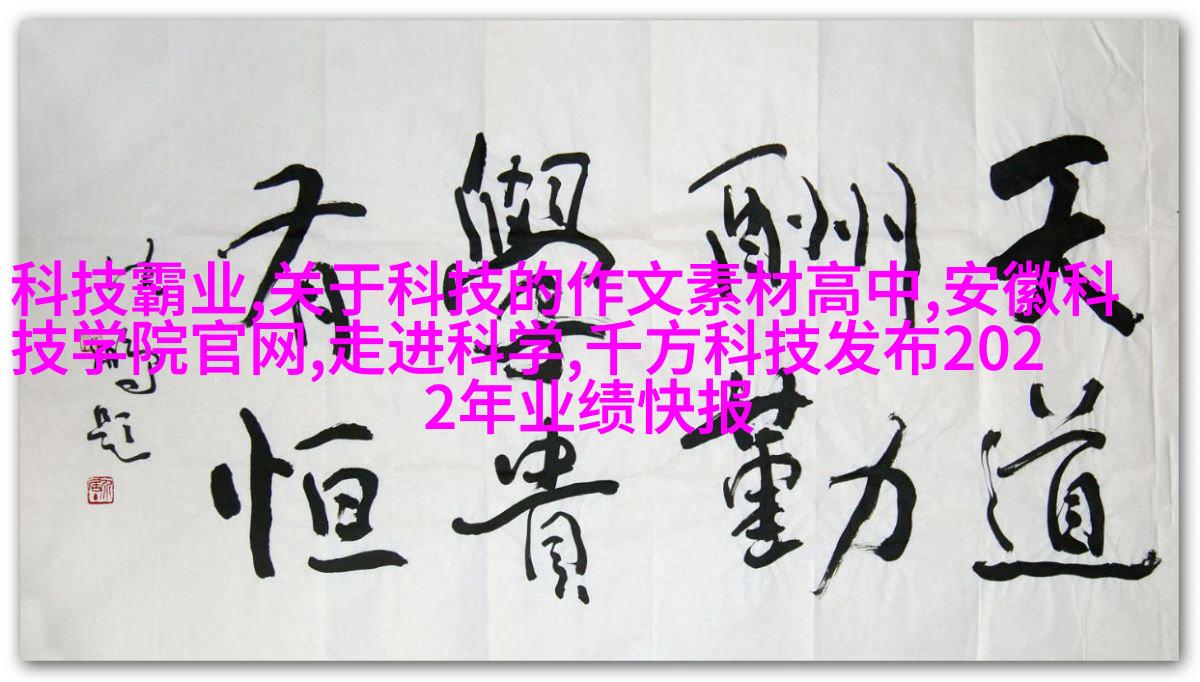 科技霸业,关于科技的作文素材高中,安徽科
技学院官网,走进科学,千方科技发布202
2年业绩快报
天道
酬勤
學貴
有恒
題